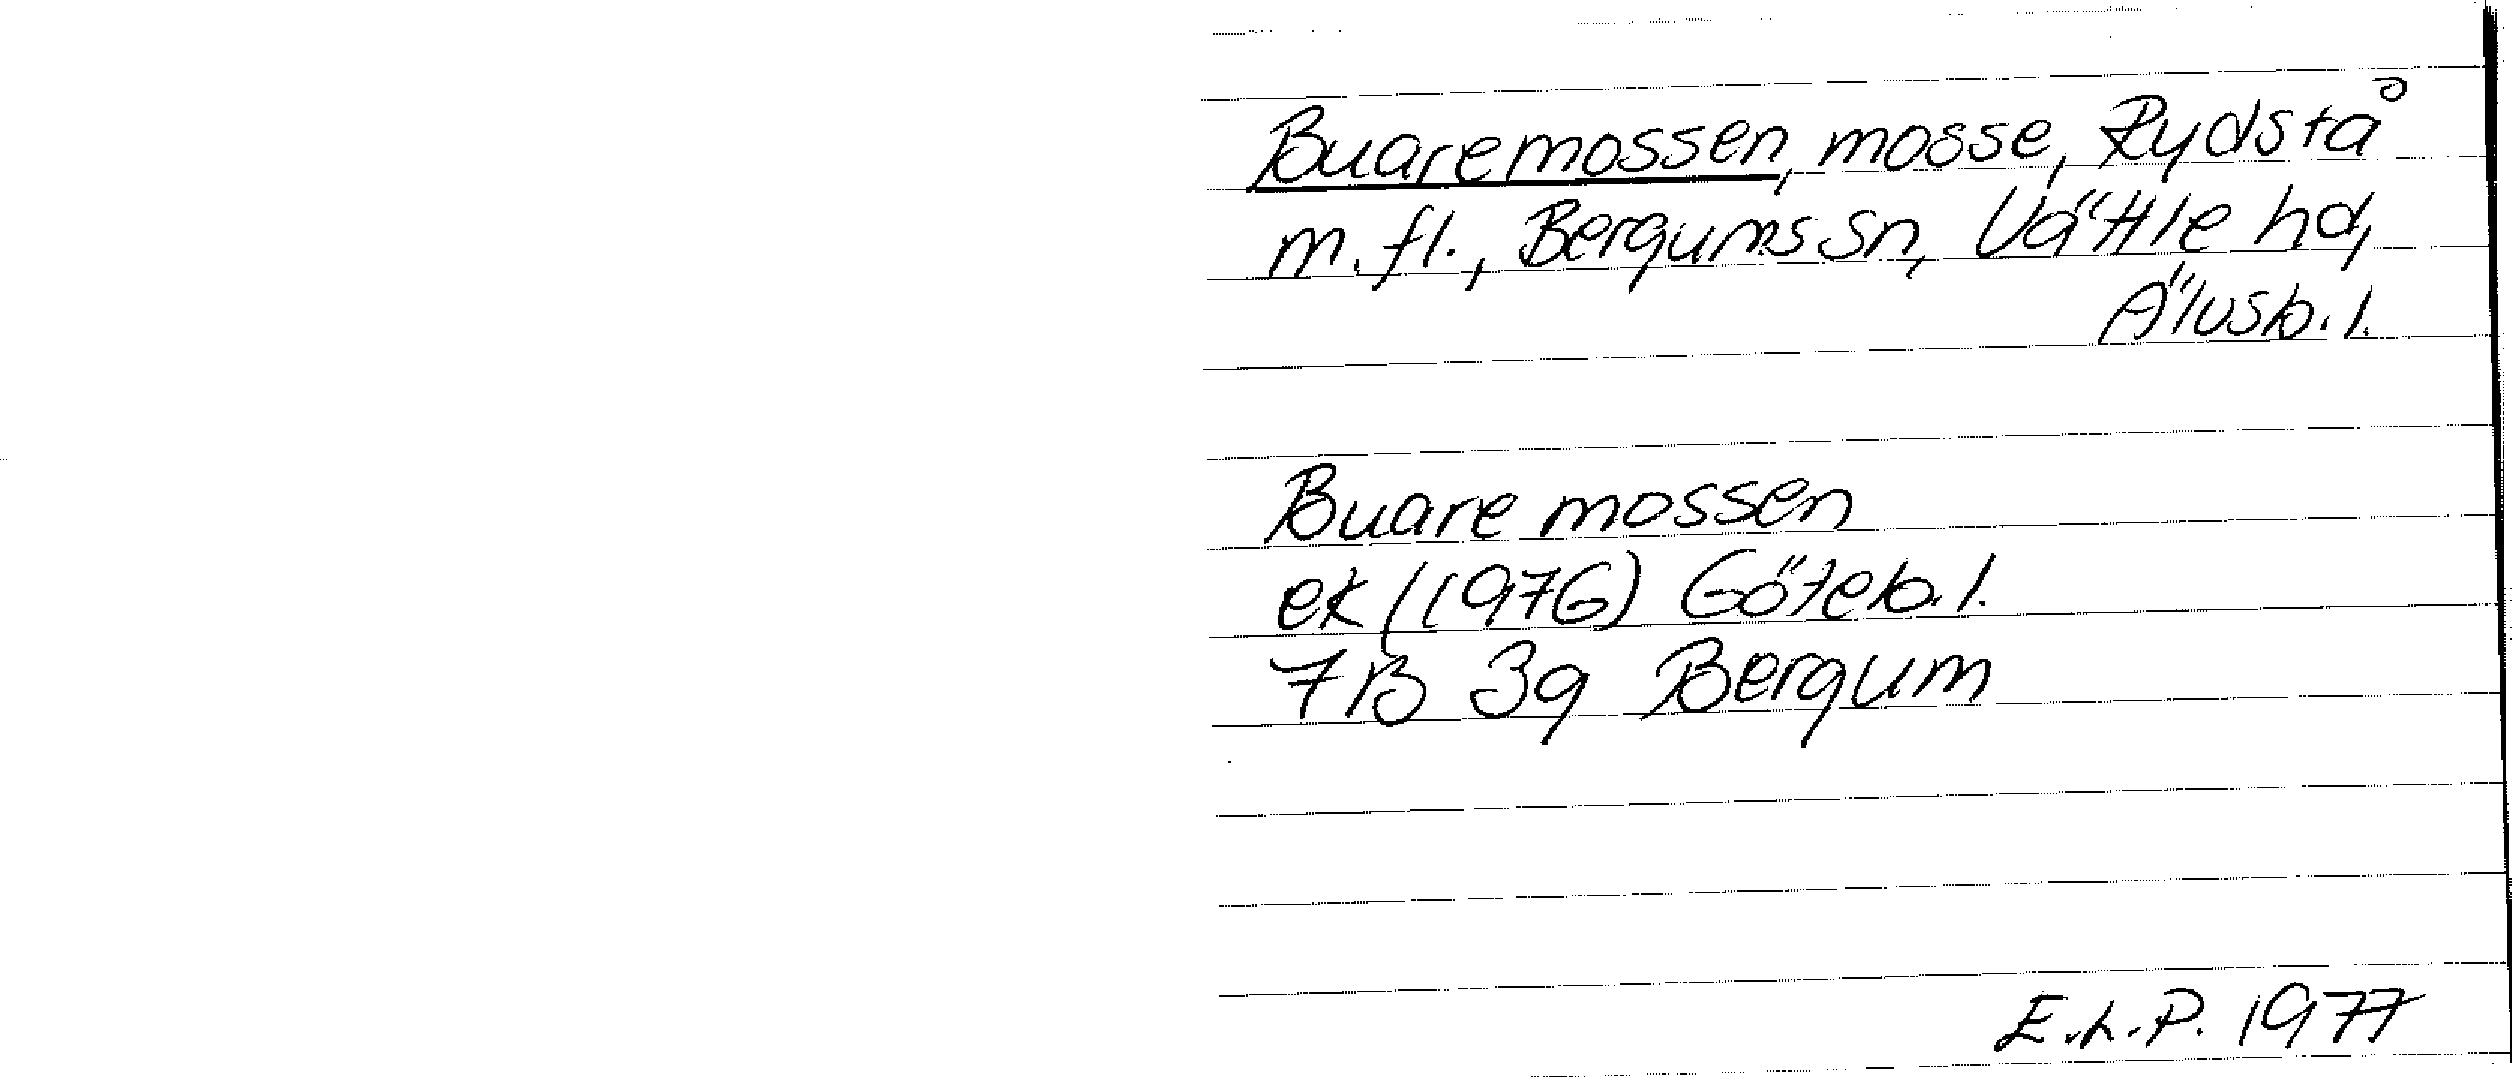 Buaremossen, mosse, Rydstå
m.fl., Bergums sn, Vättle hd,
Älvsb. l.
Buare mossen
ek (1976) Göteb. l.
7B 3g Bergum
E.L.P. 1977